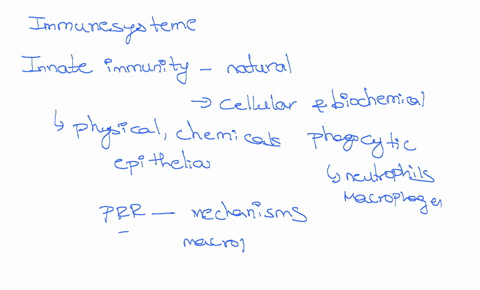 Immunesysteme
Innate immunity – natural
→ cellular & biochemical
↳ physical, chemicals phagocytic
epithelia ↳ neutrophils
macrophages
PRR — mechanisms
macro